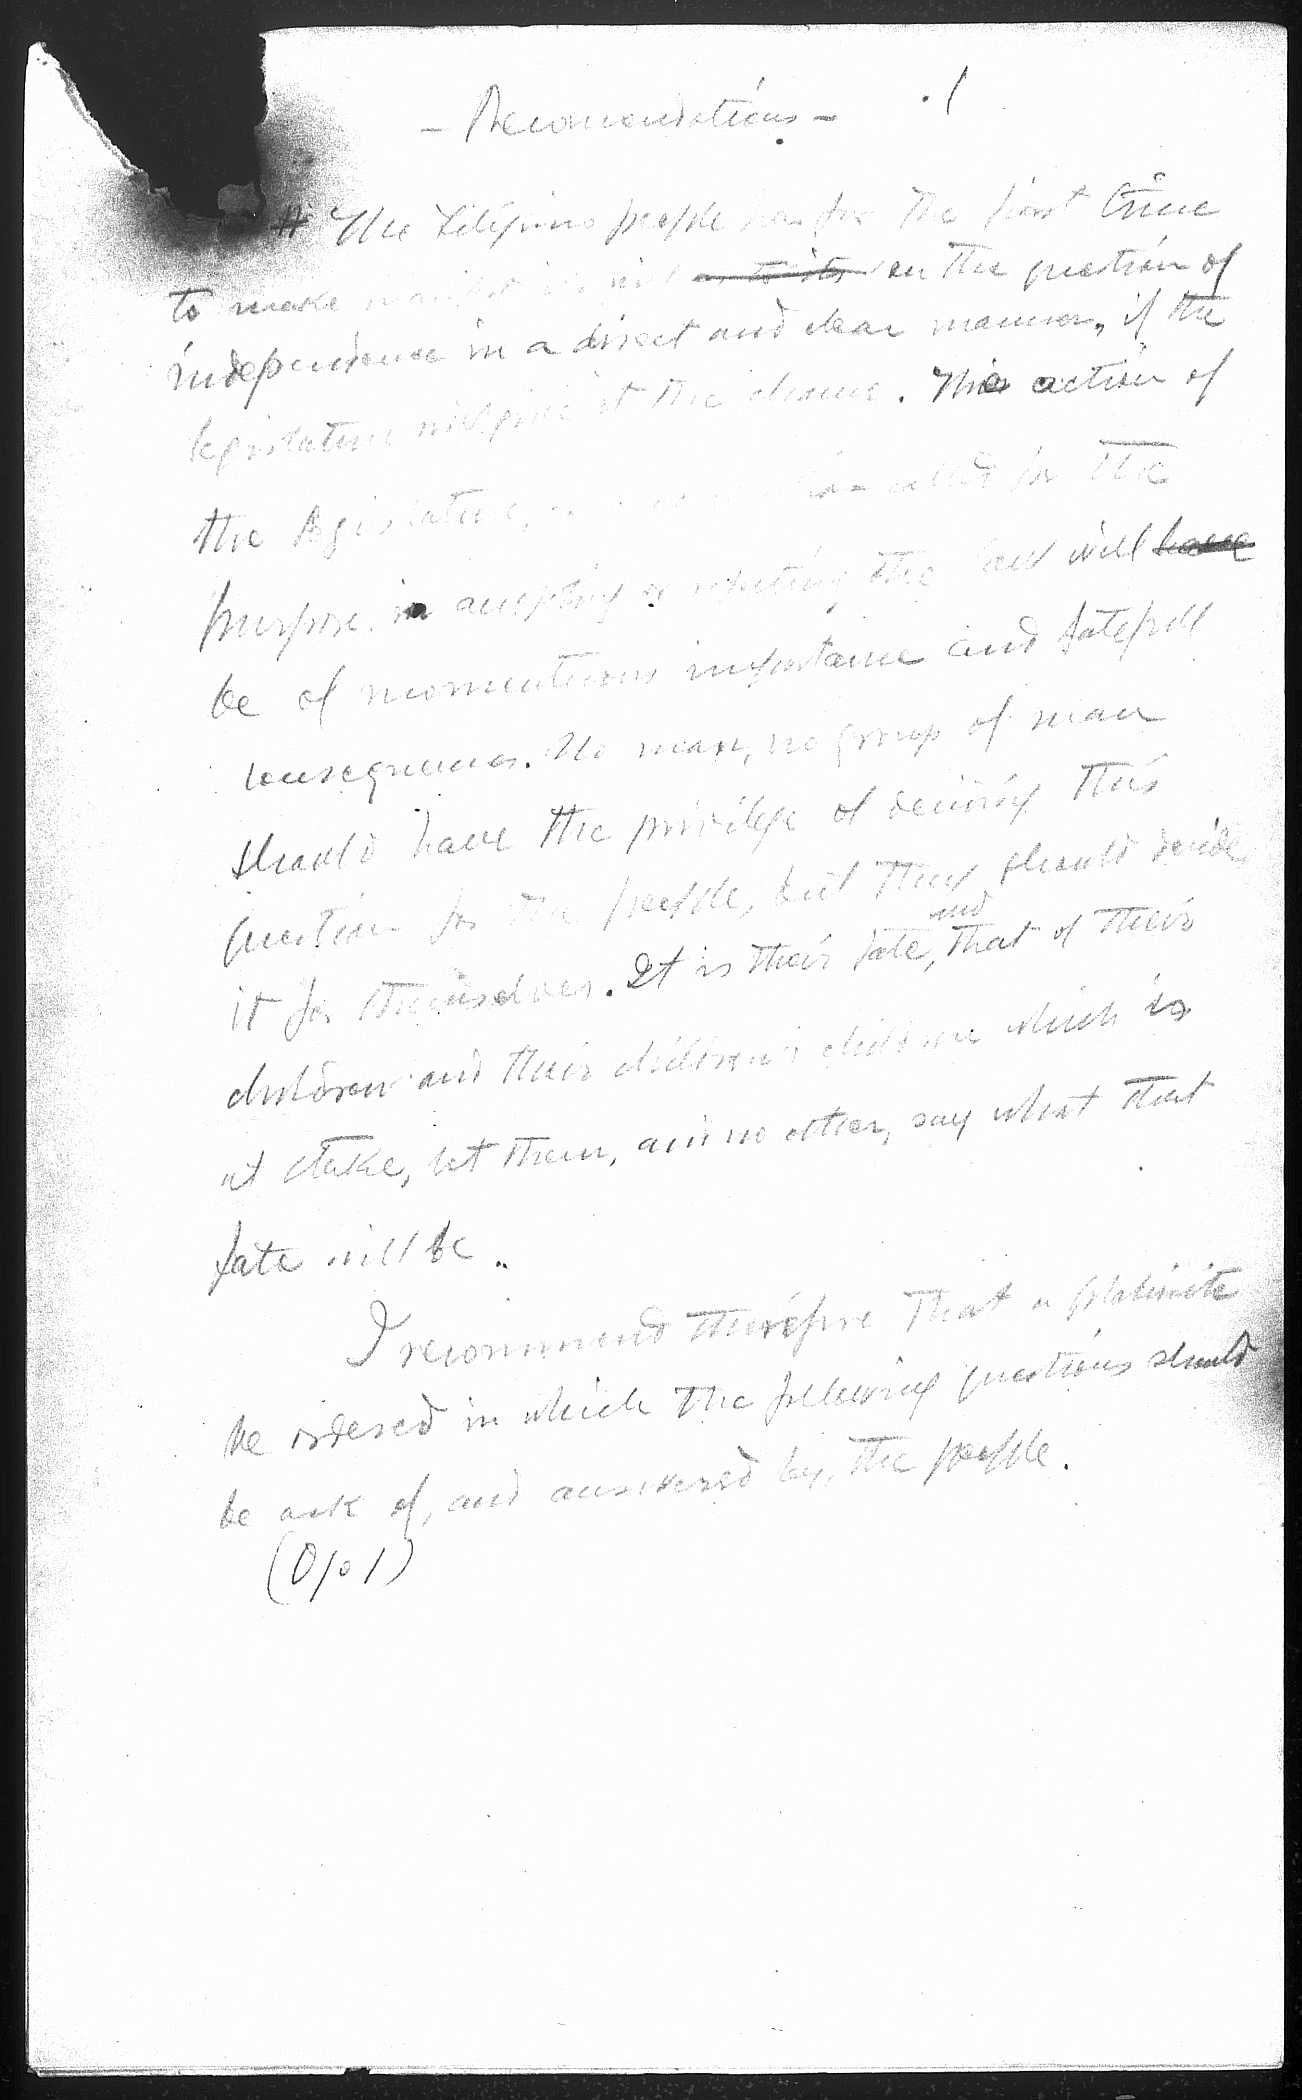 - Recomendations - . 1
The Filipino people can for the first time
to make manifest its will as to its on the question of
independence in a direct and clear manner, if the
legislature will give it the chance. The action of
the legislature, called for the
purpose in accepting or rejecting the law will have
be of momentuous importance and fatefull
consequences. No man, no group of man
should have the privilege of deciding this
question for the people, but they should decide
it for themselves. It is their fate, and that of their
children and their children's children which is
at stake, let them, and no other, say what that
fate will be.
I recommend therefore that a plebiscite
be ordered in which the following questions should
be ask of, and answered by, the people.